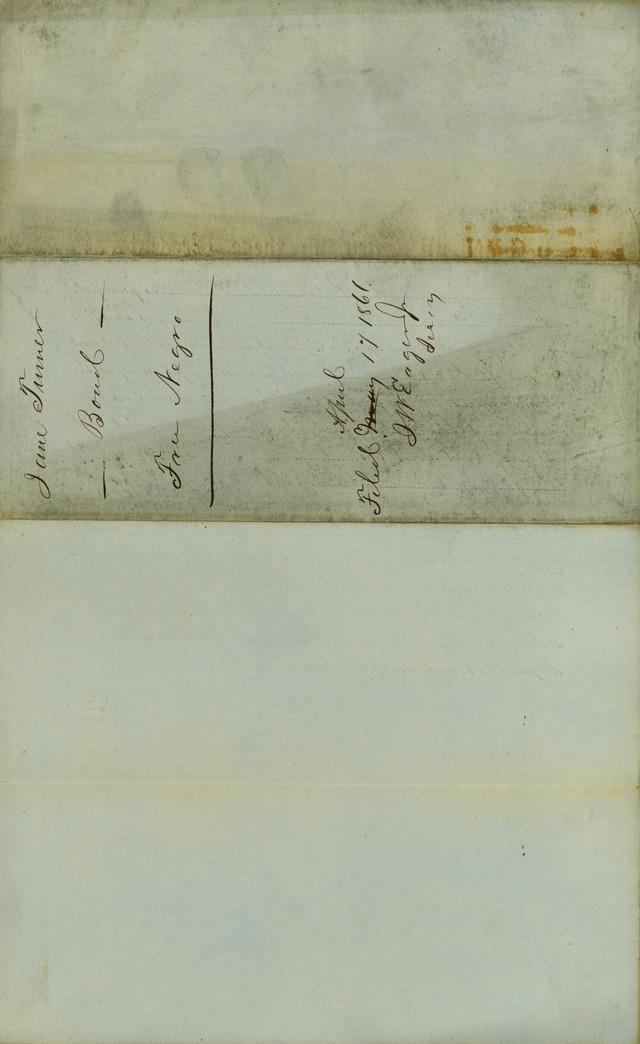 Jane Turner
— Bond —
Free Negro
April
Filed May 17 1861.